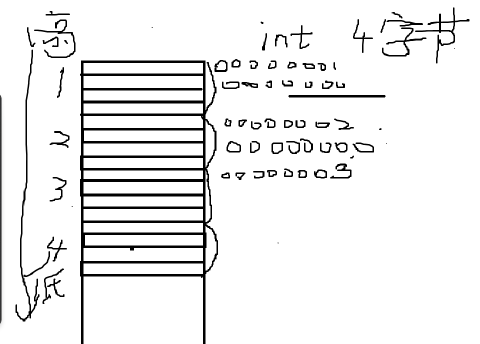 高
int 4字节
00000001
1
00000000
00000002
2
00000000
00000003
3
4
低